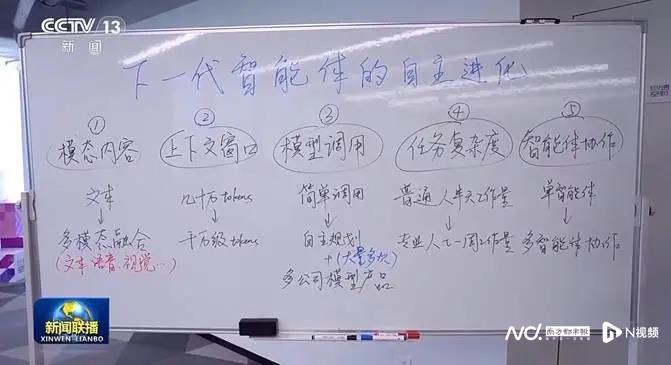 CCTV 13
新闻
下一代智能体的自主进化
① ② ③ ④ ⑤
模态内容 上下文窗口 模型调用 任务复杂度 智能体协作
文本 几十万tokens 简单调用 普通人半天工作量 单智能体
↓ ↓ ↓ ↓ ↓
多模态融合 千万级tokens 自主规划 专业人士一周工作量 多智能体协作
(文本 语音、视觉…) +(大量多次)
多公司模型产品
新闻联播
XINWEN-LIANBO
南方都市报
N视频